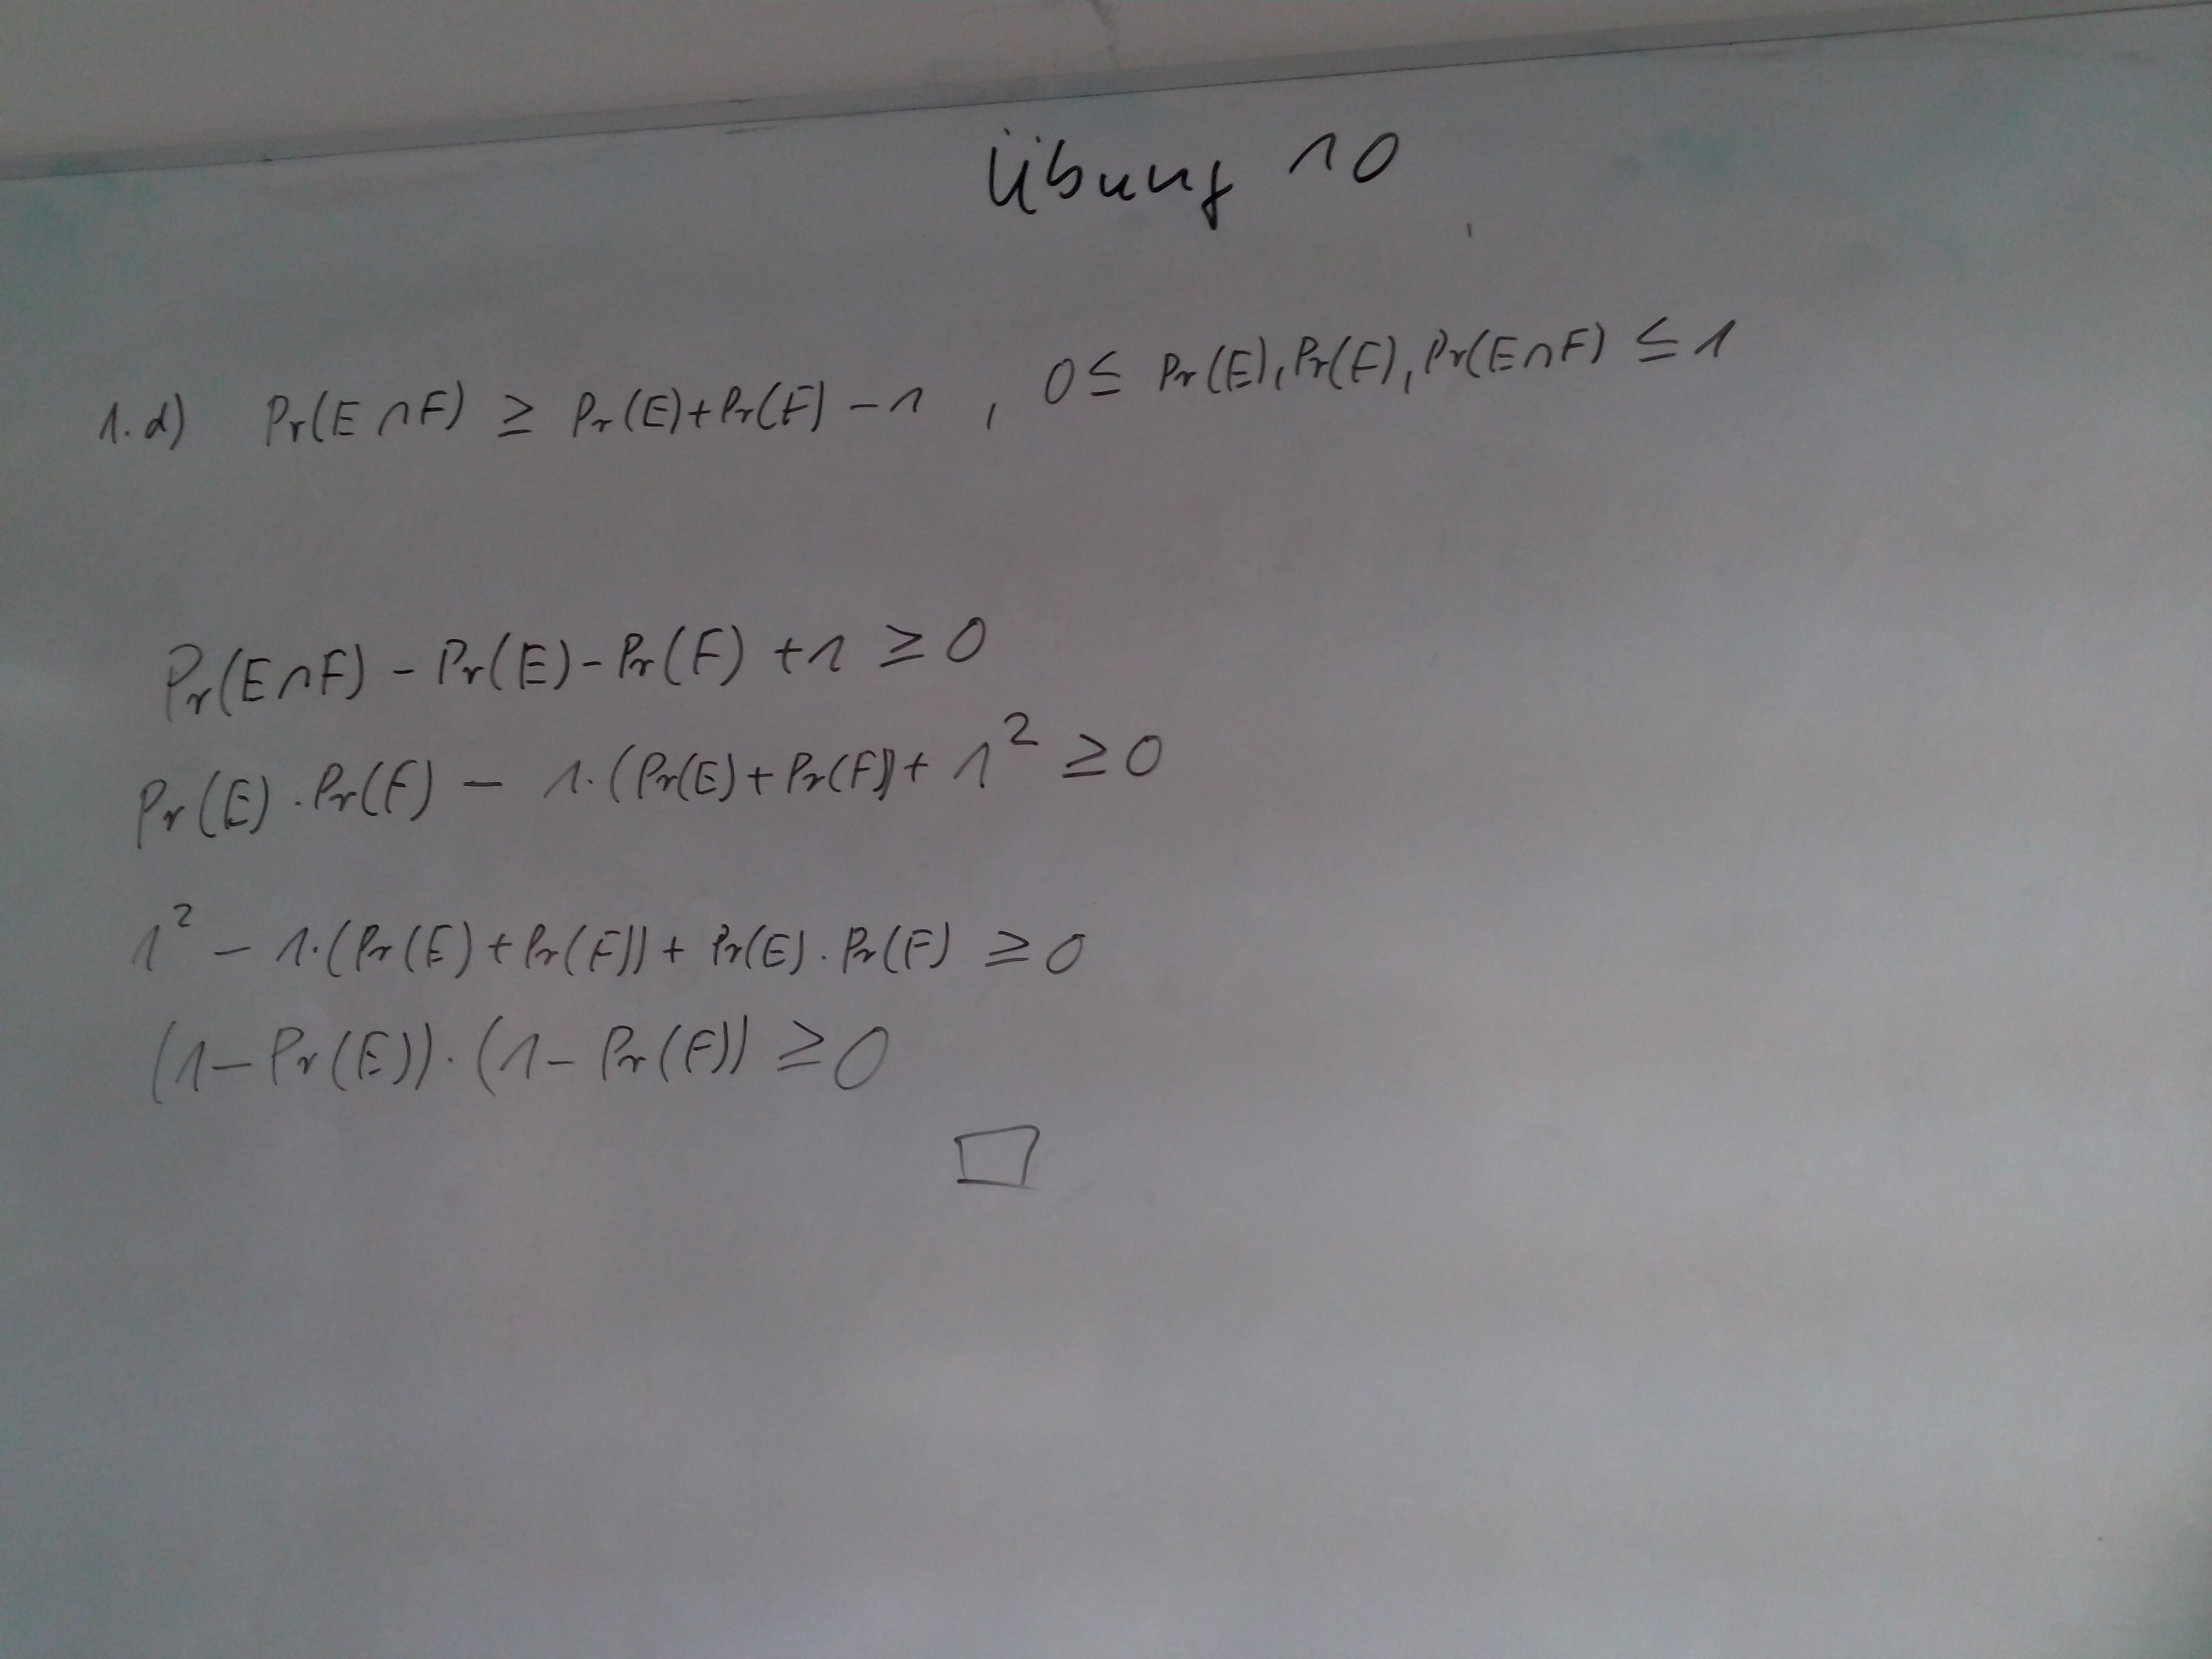 Übung 10
1. d) Pr(E ∩ F) ≥ Pr(E)+Pr(F) -1 , 0 ≤ Pr(E), Pr(F), Pr(E∩F) ≤ 1
Pr(E∩F) - Pr(E) - Pr(F) +1 ≥ 0
Pr(E) · Pr(F) - 1·(Pr(E)+Pr(F))+ 1² ≥ 0
1² - 1·(Pr(E)+Pr(F)) + Pr(E) · Pr(F) ≥ 0
(1-Pr(E))·(1-Pr(F)) ≥ 0
□